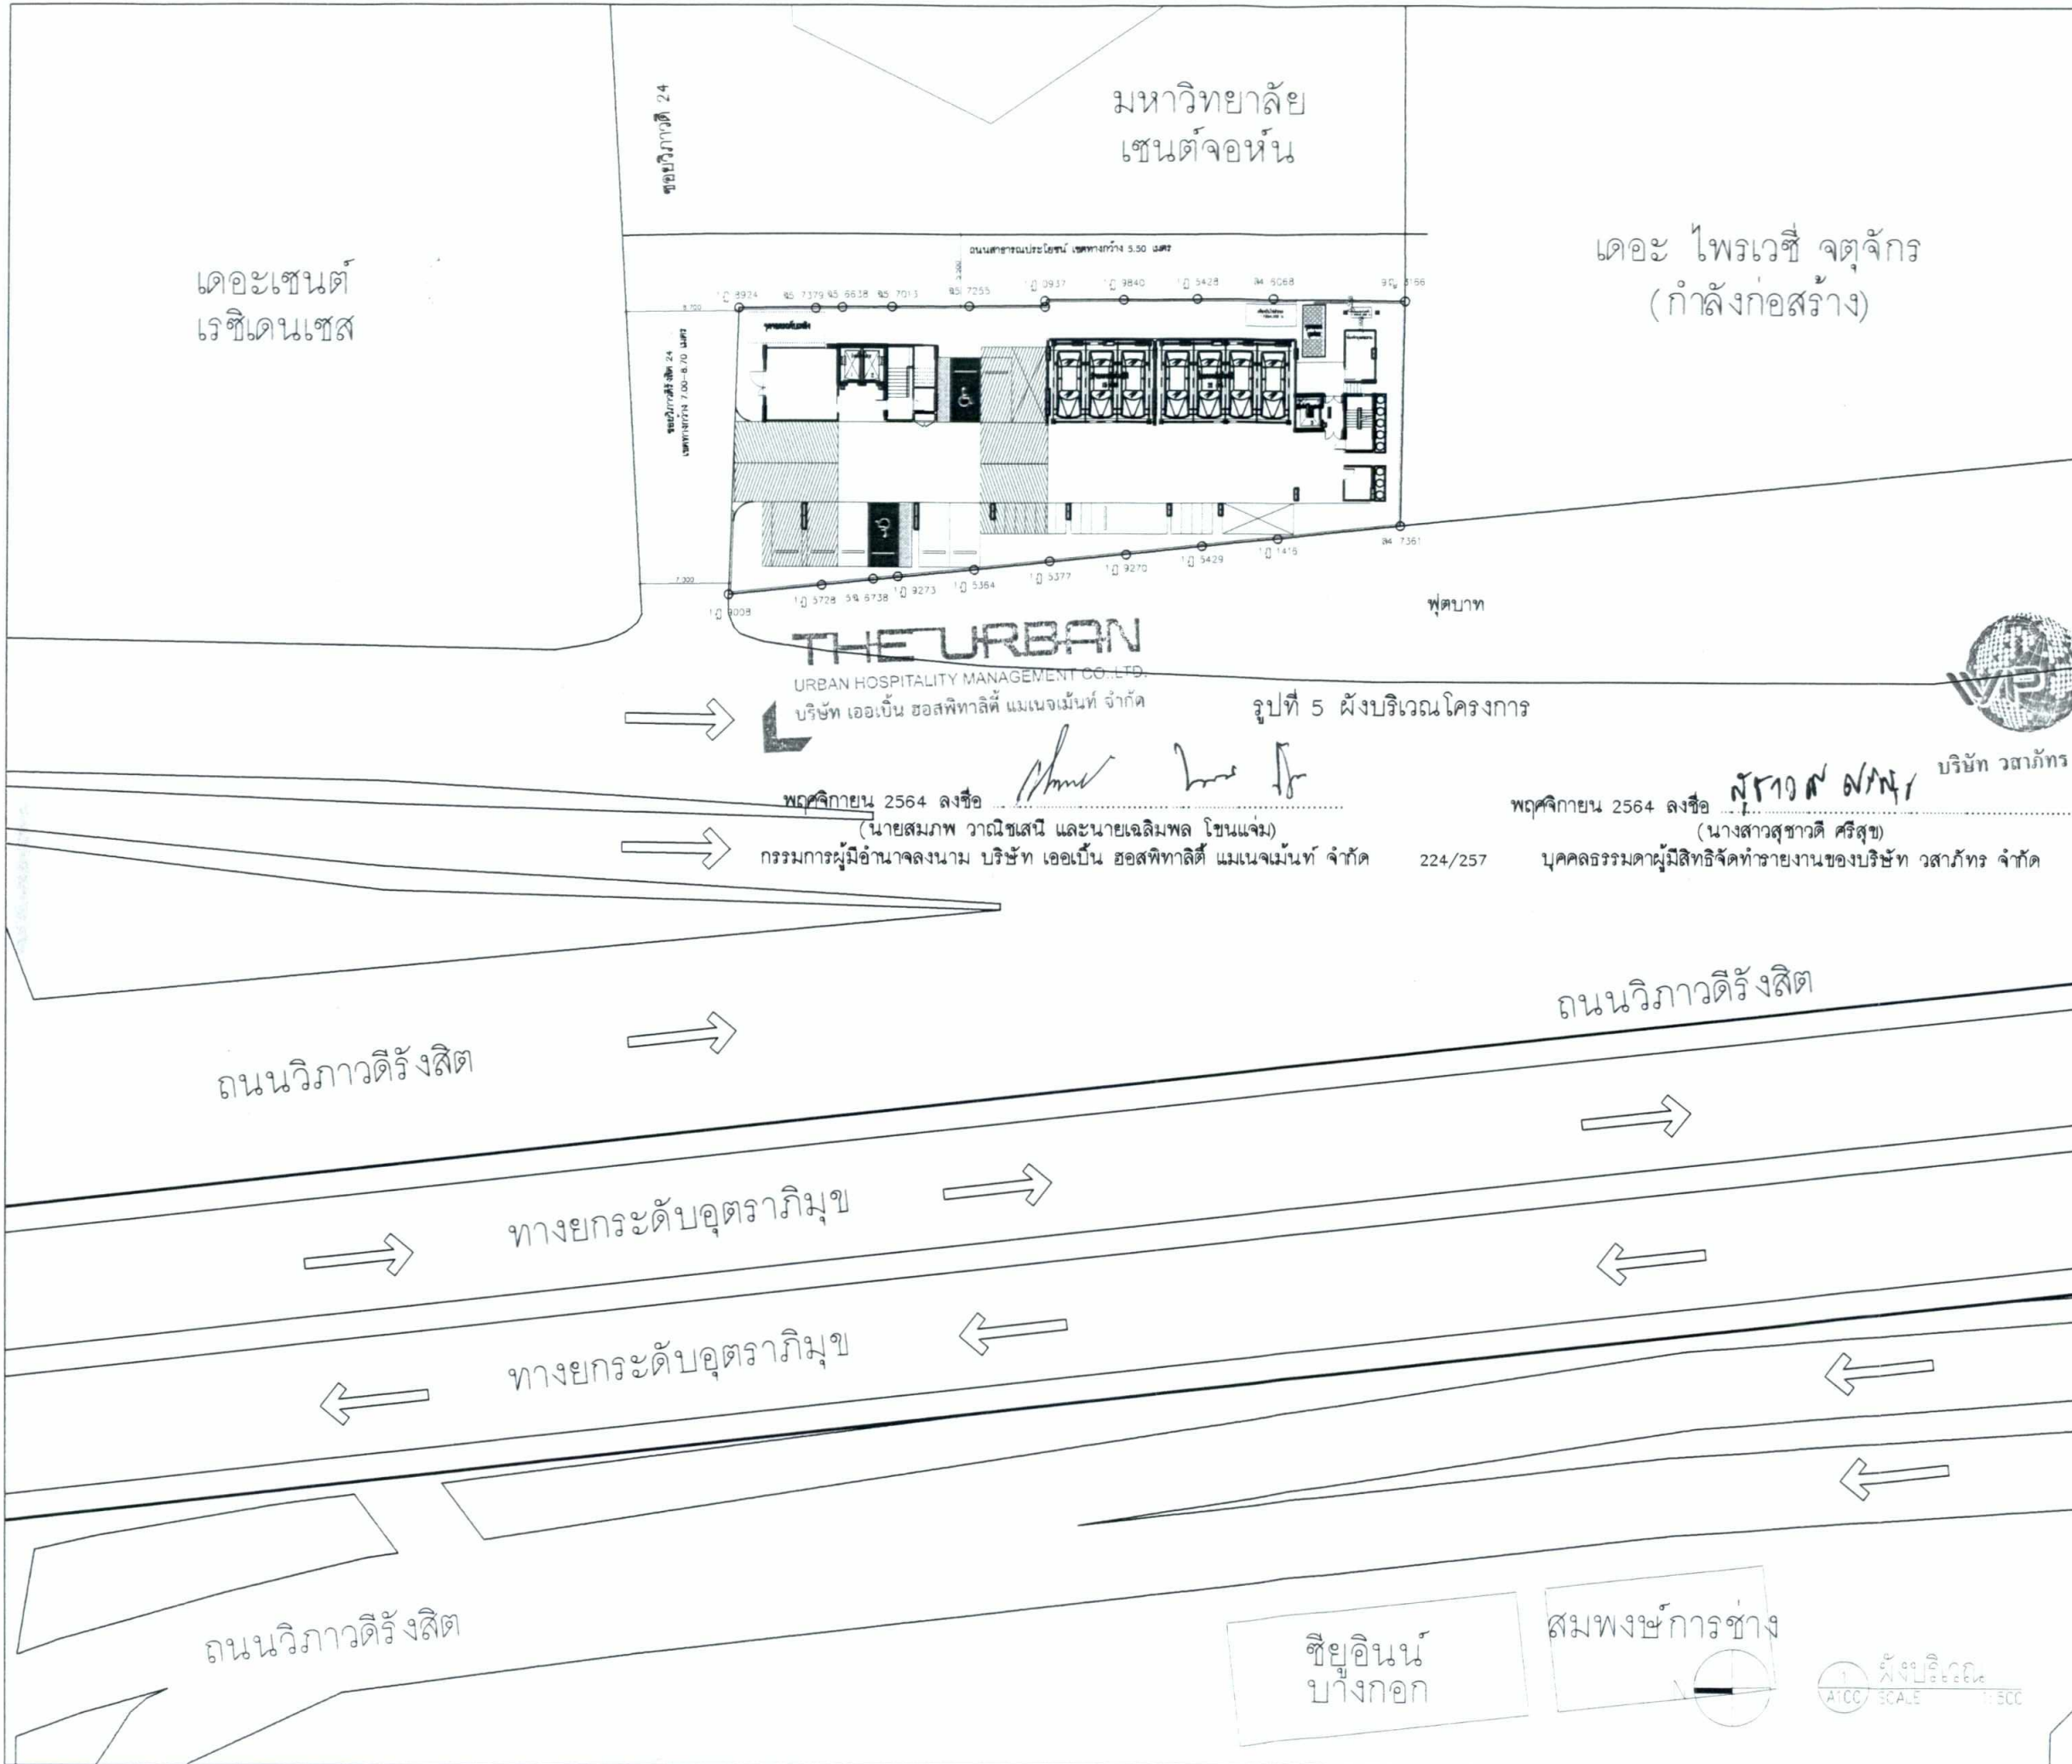 ซอยวิภาวดี 24
มหาวิทยาลัย
เซนต์จอห์น
เดอะเซนต์
เรซิเดนเซส
เดอะ ไพรเวซี่ จตุจักร
(กำลังก่อสร้าง)
ถนนสาธารณประโยชน์ เขตทางกว้าง 5.50 เมตร
8924
7379
6638
7013
7255
0937
9840
5428
6068
8.700
ซอยวิภาวดีรังสิต 24
เขตทางกว้าง 7.00-8.70 เมตร
7.000
9008
5728
6738
9273
5364
5377
9270
5429
1415
7361
ฟุตบาท
THE URBAN
URBAN HOSPITALITY MANAGEMENT CO.,LTD.
บริษัท เออเบิ้น ฮอสพิทาลิตี้ แมเนจเม้นท์ จำกัด
รูปที่ 5 ผังบริเวณโครงการ
บริษัท วสาภัทร
พฤศจิกายน 2564 ลงชื่อ
(นายสมภพ วาณิชเสนี และนายเฉลิมพล โขนแจ่ม)
กรรมการผู้มีอำนาจลงนาม บริษัท เออเบิ้น ฮอสพิทาลิตี้ แมเนจเม้นท์ จำกัด
224/257
พฤศจิกายน 2564 ลงชื่อ
(นางสาวสุชาวดี ศรีสุข)
บุคคลธรรมดาผู้มีสิทธิจัดทำรายงานของบริษัท วสาภัทร จำกัด
ถนนวิภาวดีรังสิต
ถนนวิภาวดีรังสิต
ทางยกระดับอุตราภิมุข
ทางยกระดับอุตราภิมุข
ถนนวิภาวดีรังสิต
ซียูอินน์
บางกอก
สมพงษ์การช่าง
ผังบริเวณ
SCALE